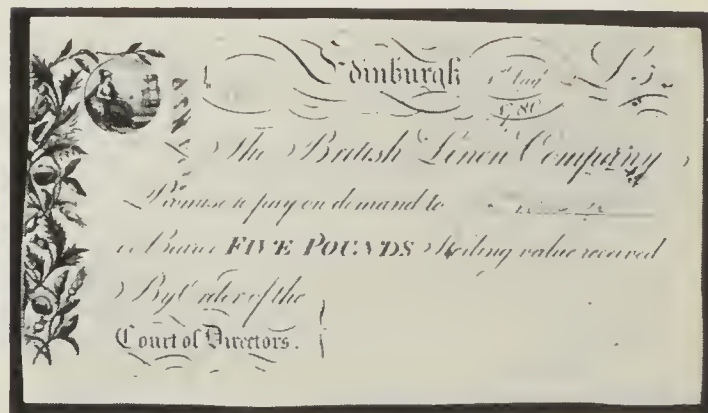 Edinburgh £5
The British Linen Company
Promise to pay on demand to
or Bearer FIVE POUNDS Sterling value received
By Order of the
Court of Directors.